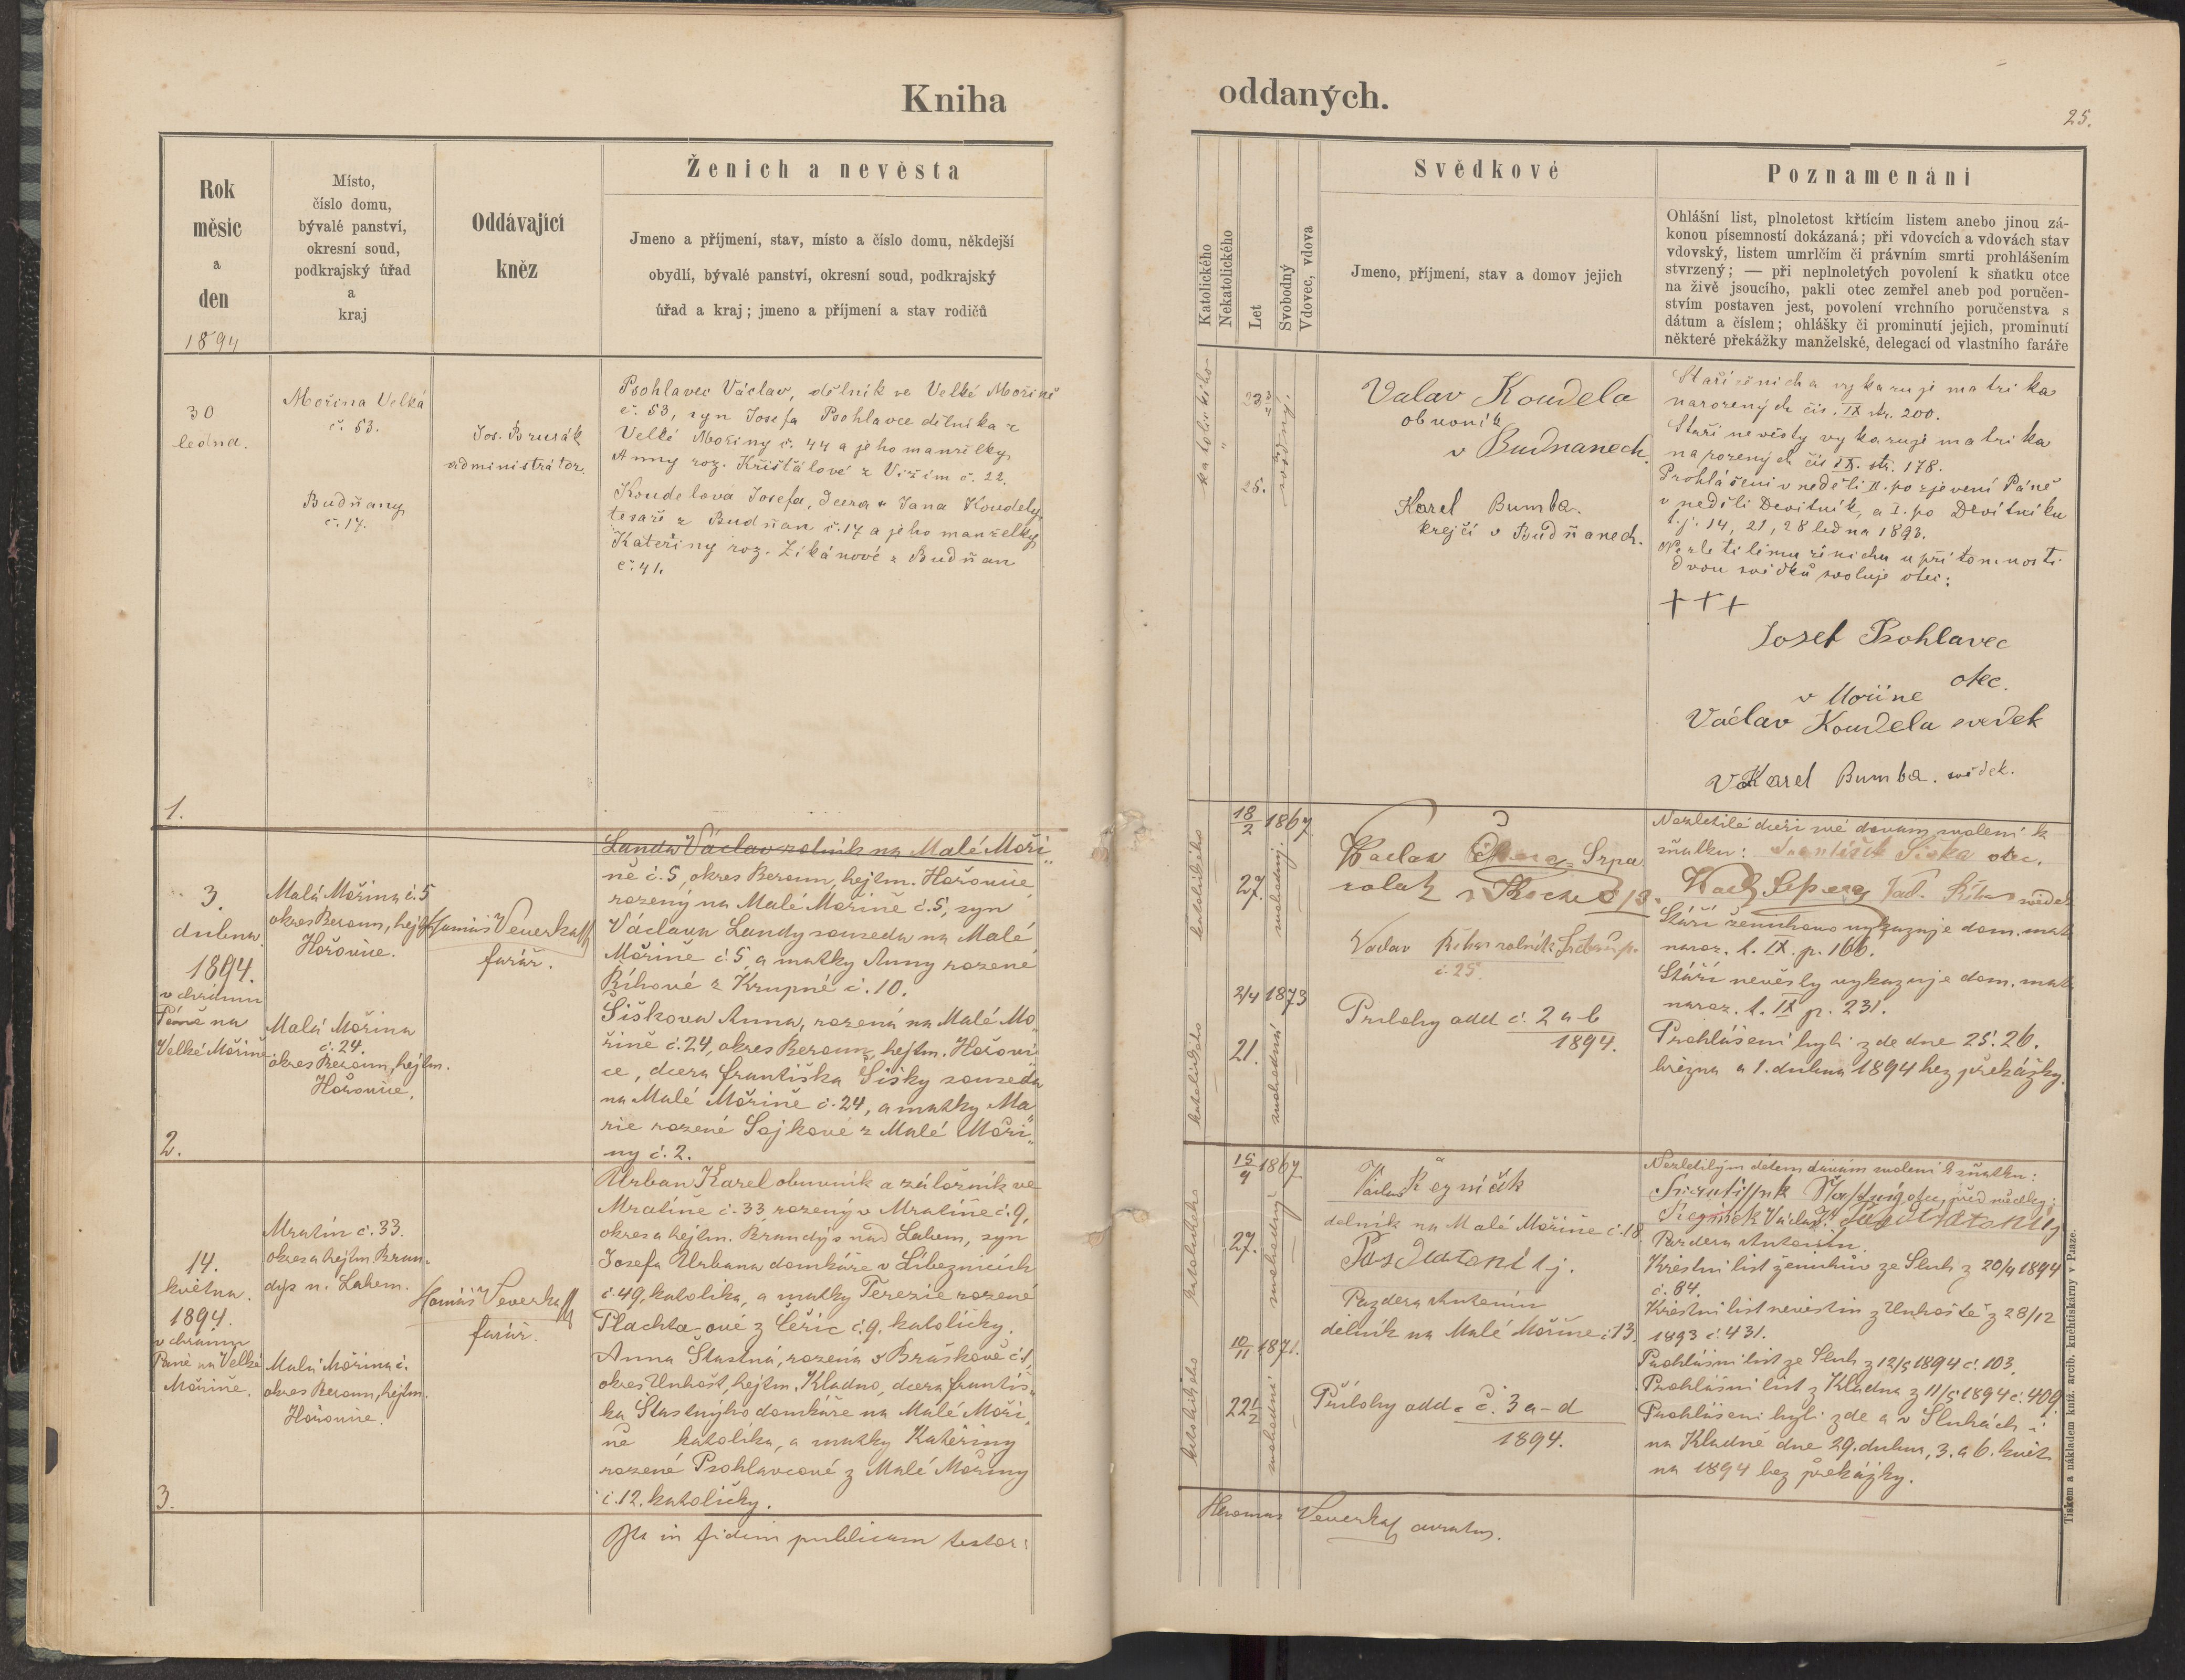 Kniha
oddaných.
25.
Rok
měsíc
a
den
1894
Místo,
číslo domu,
bývalé panství,
okresní soud,
podkrajský úřad
a
kraj
Oddávající
kněz
Ženich a nevěsta
Jmeno a příjmení, stav, místo a číslo domu, někdejší
obydlí, bývalé panství, okresní soud, podkrajský
úřad a kraj; jmeno a příjmení a stav rodičů
Katolického
Nekatolického
Let
Svobodný
Vdovec, vdova
Svědkové
Jmeno, příjmení, stav a domov jejich
Poznamenání
Ohlášní list, plnoletost křtícím listem anebo jinou zá-
konou písemností dokázaná; při vdovcích a vdovách stav
vdovský, listem umrlčím či právním smrti prohlášením
stvrzený; — při neplnoletých povolení k sňatku otce
na živě jsoucího, pakli otec zemřel aneb pod poručen-
stvím postaven jest, povolení vrchního poručenstva s
dátum a číslem; ohlášky či prominutí jejich, prominutí
některé překážky manželské, delegací od vlastního faráře
30
ledna.
Mořina Velká
č. 53.
Budňany
č. 17.
Jos. Brusák
administrátor.
Psohlavec Václav, dělník ve Velké Mořině
č. 53, syn Josefa Psohlavce dělníka z
Velké Mořiny č. 44 a jeho manželky
Anny roz. Křišťálové z Vižim č. 22.
Koudelová Josefa, dcera Jana Koudely
tesaře z Budňan č. 17 a jeho manželky
Kateřiny roz. Zikánové z Budňan
č. 41.
1.
katolického
"
23
25.
Valav Koudela
obuvník
v Budnanech.
Karel Bumba.
krejčí v Budňanech.
Stáří ženicha vykazuje matrika
narozených čís. IX str. 200.
Stáří nevěsty vykazuje matrika
narozených čís IX. str. 178.
Prohlášeni v neděli II. po zjevení Páně
v neděli Devítník, a I. po Devítníku
t. j. 14, 21, 28 ledna 1893.
Nezletilému ženichu u přítomnosti
dvou svědků svoluje otec:
+++
Josef Psohlavec
otec.
v Morine
Václav Koudela svedek
Karel Bumba. svědek.
3.
dubna
1894.
v chrámu
Páně na
Velké Mořině
2.
Malá Mořina č. 5
okres Beroun, hejtm.
Hořovice.
Malá Mořina
č. 24.
okres Beroun, hejtm.
Hořovice.
Tomáš Veverka
farář.
Landa Václav rolník na Malé Moři
ně č. 5, okres Beroun, hejtm. Hořovice,
rozený na Malé Mořině č. 5, syn
Václava Landy souseda na Malé
Mořině č. 5 a matky Anny rozené
Říhové z Krupné č. 10.
Šiškova Anna, rozená na Malé Mo
řině č. 24, okres Beroun, hejtm. Hořovi
ce, dcera františka Šišky souseda
na Malé Mořině č. 24, a matky Ma
rie rozené Sojkové z Malé Moři
ny č. 2.
18/2 1867
27.
2/4 1873
21.
katolického
svobodný.
katolického
svobodná
Srpa
Vaclav Říha rolník
č. 25.
Přilohy odd č. 2 a-b
1894.
Nezletilé dceři mé dávám svolení k
sňatku: František Šiška otec.
Stáří ženichovo vykazuje dom. mat
naroz. t. IX. p. 166.
Stáří nevěsty vykazuje dom. mat
naroz. t. IX p. 231.
Prohlášeni byli zde dne 25. 26.
března a 1. dubna 1894 bez překážky.
14.
května.
1894.
v chrámu
Páně na Velké
Mořině.
3.
Mratín č. 33.
okres a hejtm. Bran-
dýs n. Labem.
Malá Mořina č.
okres Beroun, hejtm.
Hořovice.
Tomáš Veverka
farář.
Urban Karel obuvník a záložník ve
Mratíně č. 33 rozený v Mratíně č. 9,
okres a hejtm. Brandýs nad Labem, syn
Josefa Urbana domkáře v Líbeznicích
č. 49, katolíka, a matky Terezie rozené
Plachta-ové z Čéřic č. 9. katolíčky.
Anna Šťastná, rozená v Braškově č. 1,
okres Unhošť, hejtm. Kladno, dcera františ-
ka Šťastnýho domkáře na Malé Moři
ně katolíka, a matky Kateřiny
rozené Psohlavcové z Malé Mořiny
č. 12. katoličky.
Ita in fidem publicam testor:
15/9 1867
27.
10/11 1871.
22 1/2
katolického
svobodný
katolického
svobodná
Václav Řezníčěk
dělník na Malé Mořině č. 18
Pazdera Antonín
dělník na Malé Mořině č. 13.
Přílohy odd. č. 3 a-d
1894.
Nezletilým dětem dávám svolení k sňatku:
otec, před svědky:
Pazdera Antonín.
Křestní list ženichův ze Sluh z 20/4 1894
č. 64.
Křestní list nevěstin z Unhoště z 28/12
1893 č. 431.
Prohlášní list ze Sluh z 12/5 1894 č. 103.
Prohlášní list z Kladna z 11/5 1894 č. 409.
Prohlášeni byli zde a v Sluhách i
na Kladně dne 29. dubna, 3. a 6. květ
na 1894 bez překážky.
Thomas Veverka curatus.
Tiskem a nákladem kníž. arcib. knihtiskárny v Praze.